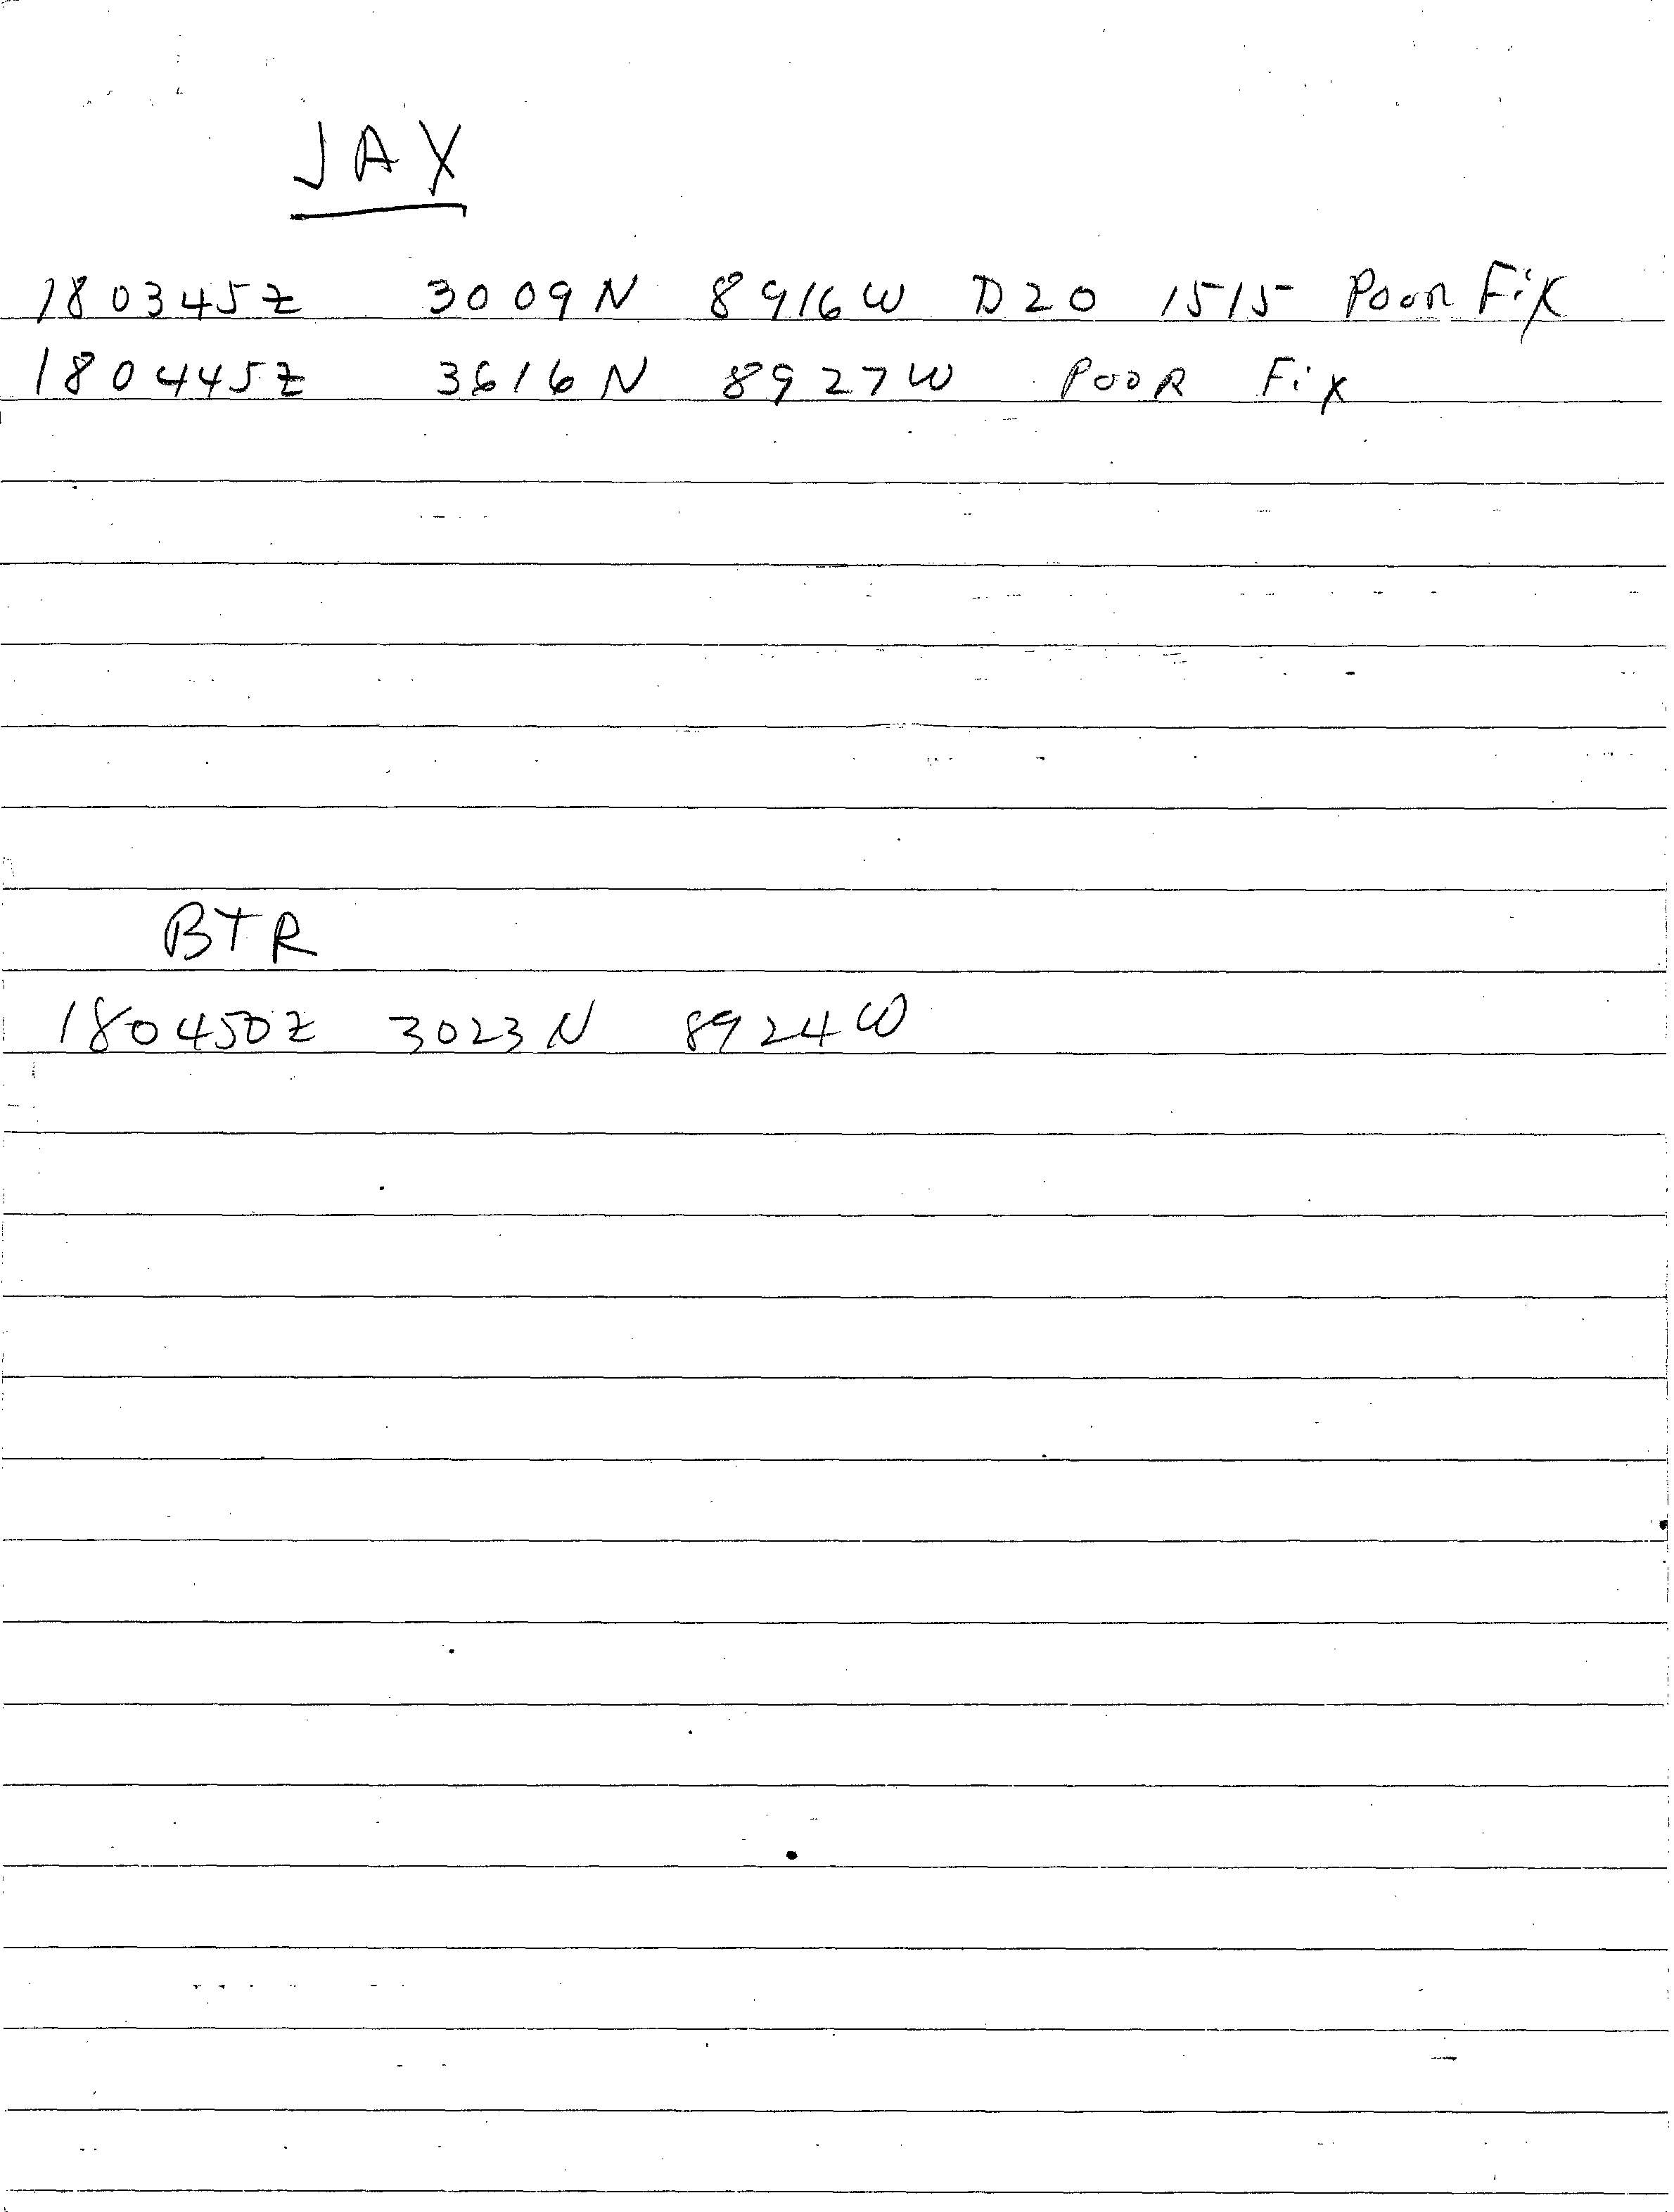 JAX
180345Z 3009N 8916W D20 1515 Poor Fix
180445Z 3616N 8927W POOR Fix
BTR
180450Z 3023N 8924W